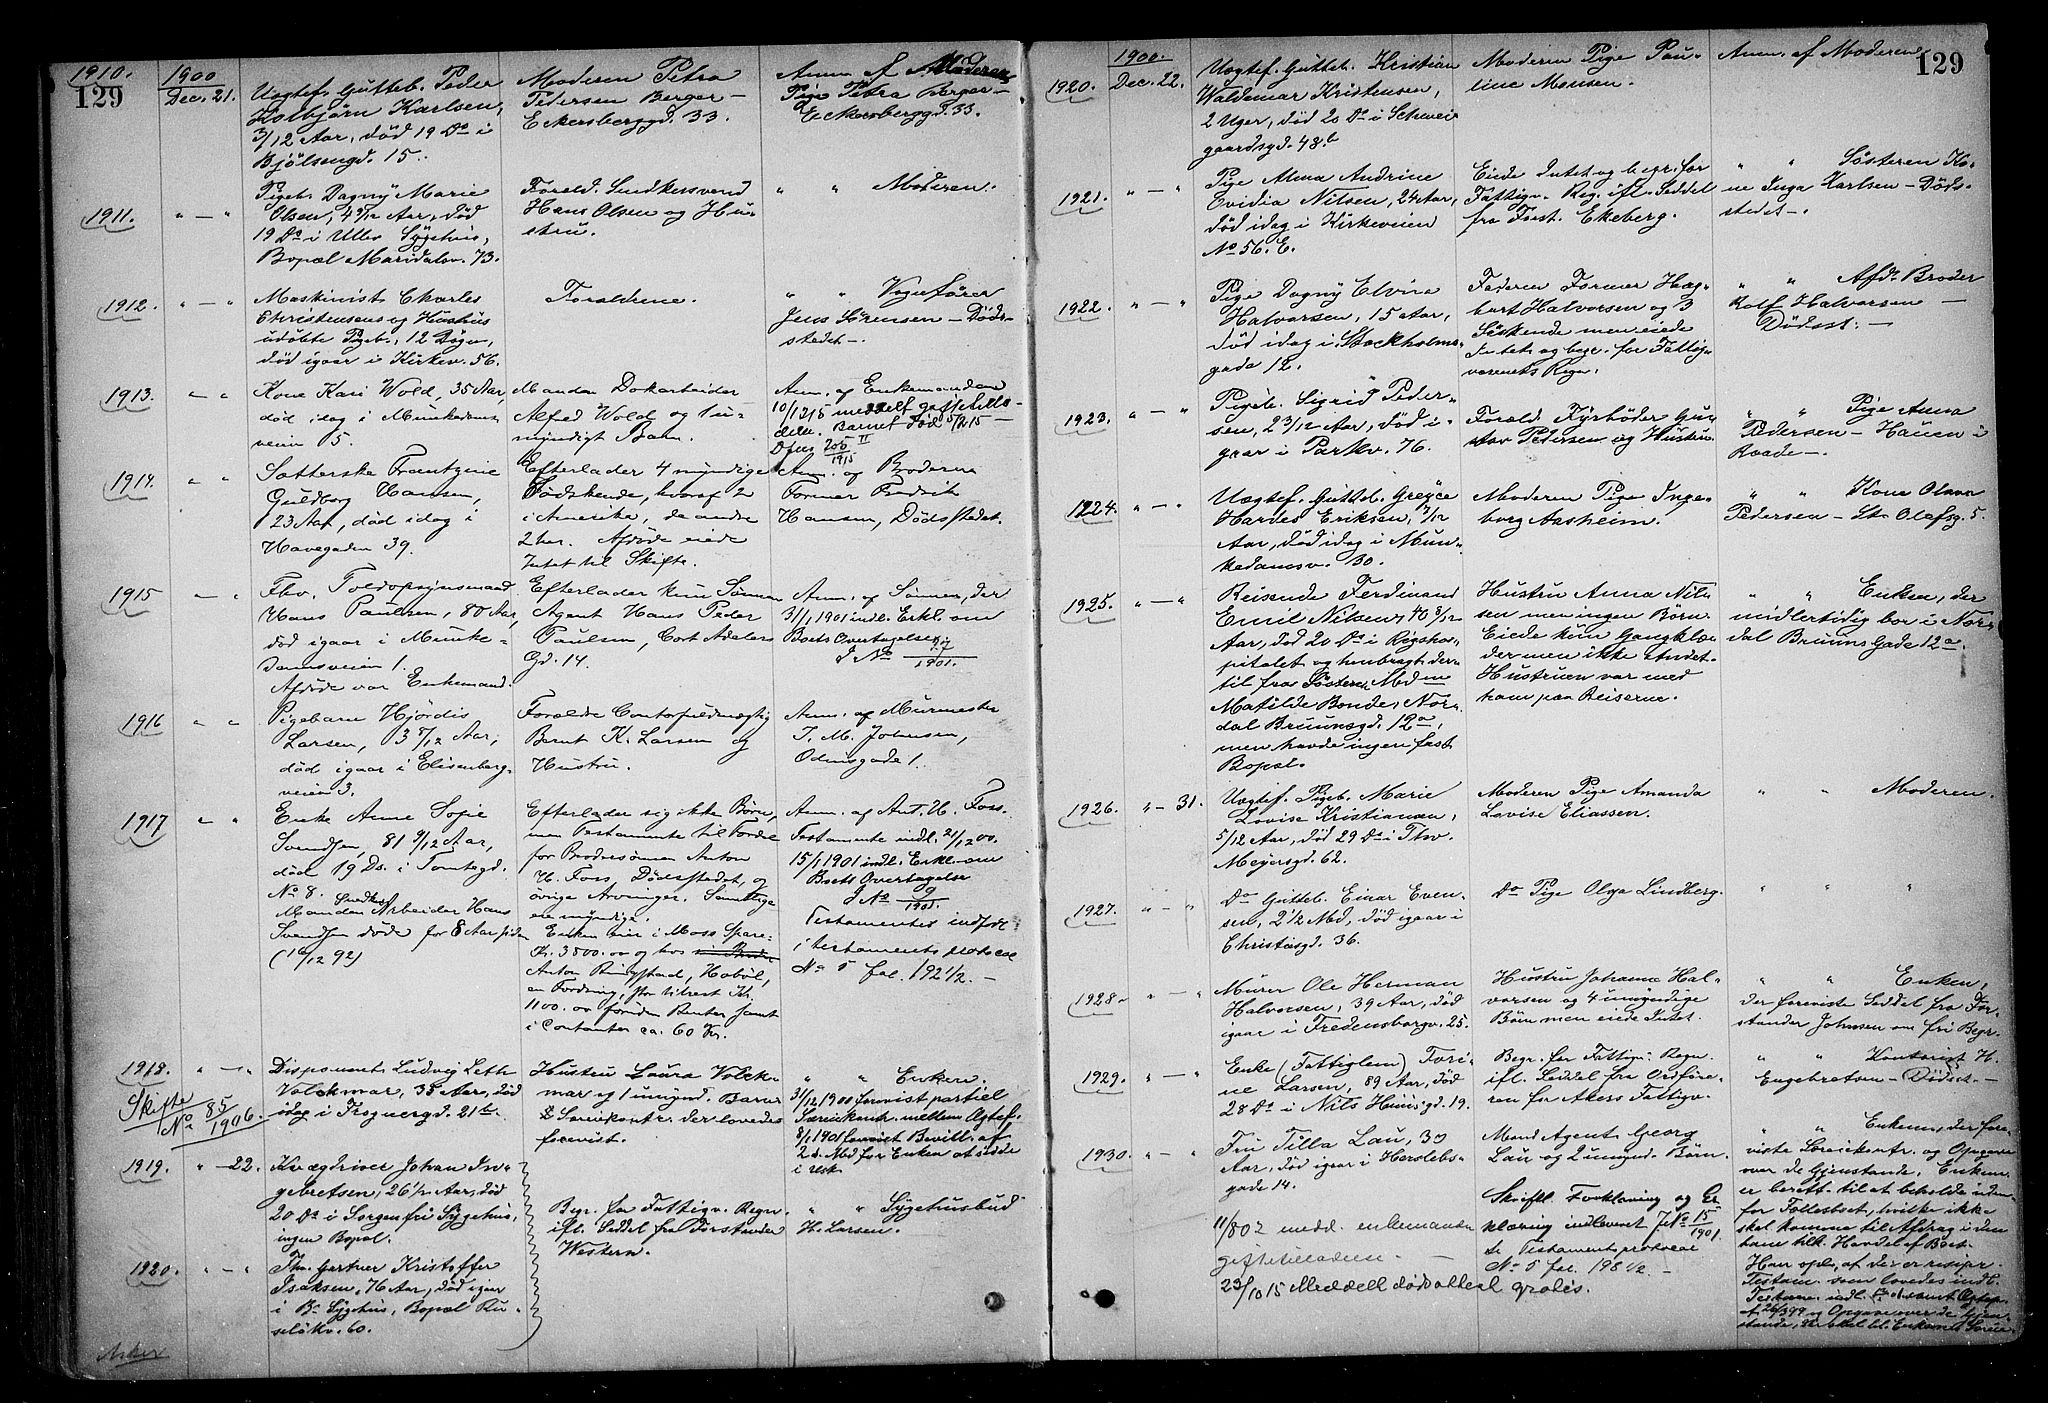 129
1910.
1900
Dec. 21.
Uægtef. Gutteb. Peder
Karlsen,
3/12 Aar, død 19 Ds i
Bjölsengd. 15.
Moderen Petra
Pedersen Berger –
Eckersberggd. 33.
Anm. af Moderen
Pige Petra Berger –
Eckersberggd. 33.
1911.
" — "
Pigeb. Dagny Marie
Olsen, 4 9/12 Aar, død
19 Ds i Ullev. Sygehus,
Bopæl Maridalsv. 73.
Foræld. Snedkersvend
Hans Olsen og Hu-
stru.
" " Moderen.
1912.
" — "
Maskinist Charles
Christensens og Hustrus
udöbte Pigeb., 12 Dögn,
død igaar i Kirkev. 56.
Forældrene.
" " Vognfører
Jens Sørensen – Døds-
stedet –.
1913.
" — "
Kone Kari Wold, 35 Aar,
død idag i Munkedams-
veien 5.
Manden Dokarbeider
Alfed Wold og 1 u-
myndigt Barn.
Anm. af Enkemanden
10/12 15 meddelt giftetilla-
delse. Barnet født 5/
Dfus 705 II
1915
1914.
" "
Sætterske Frantzine
Guldborg Hansen,
23 Aar, død idag i
Havegaden 39.
Efterlader 4 myndige
Södskende, hvoraf 2
i Amerika, de andre
2 her. Afdöde eiede
Intet til Skifte.
Anm. af Broderen
Former Fredrik
Hansen, Dødsstedet.
1915
" — "
Fhv. Toldopsynsmand
Hans Paulsen, 80 Aar,
død igaar i Munke-
damsveien 1.
Afdøde var Enkemand.
Efterlader kun Sønnen
Agent Hans Peder
Paulsen, Cort Adelers
Gd. 14.
Anm. af Sønnen, der
31/1 1901 indl. Erkl. om
Boets Overtagelse
J No 97
1901.
1916
" "
Pigebarn Hjördis
Larsen, 3 7/12 Aar,
død igaar i Elisenberg-
veien 3.
Forældre Contorfuldmægtig
Bernt K. Larsen og
Hustru.
Anm. af Murmester
T. M. Johnsen,
Odinsgade 1.
1917
" "
Enke Anne Sofie
Svendsen, 81 9/12 Aar,
død 19 Ds. i Tomtegd.
No 8.
Snedker
Manden Arbeider Hans
Svendsen døde for 8 Aar siden
(16/12 92)
Efterlader sig ikke Börn,
men Testamente til Fordel
for Brodersønnen Anton
H. Foss, Dødsstedet, og
övrige Arvinger. Samtlige
ere myndige.
Enken eier i Moss Spare-
Kr. 3800.00 og hos
Anton Ringstad, Hobøl,
en Fordring, stor tilrest Kr.
1100.00 foruden Renter samt
i Contanter ca. 60 Kr.
Anm. af Ant. H. Foss.
Testamente indl. 21/12 00.
15/1 1901 indl. Erkl. om
Boets Overtagelse
J No 9
1901
Testamentet indført
i testamentsprotocol
No 5 fol. 192 1/2. –
1918.
" — "
Skifte
No 85
1906.
Disponent Ludvig Leth
Volckmar, 35 Aar, død
idag i Frognergd. 21 b.
Hustru Laura Volck-
mar og 1 umynd. Barn
Særeikontr. der lovedes
forevist.
" " Enken.
31/12 1900 forevist partiel
Særeikontr. mellem Ægtef.
8/1 1901 forevist Bevill. af
2 d. Md for Enken at sidde
i usk.
1919.
" – 22.
Kvægdriver Johan In-
gebretsen, 26 1/2 Aar, død
20 Ds i Sorgenfri Sygehus,
ingen Bopæl.
Begr. for Fattigv. Regn.
ifl. Seddel fra Forstander
Western.
" " Sygehusbud
H. Larsen.
1920.
" — "
Fhv. Gartner Kristoffer
Isaksen, 76 Aar, død igaar
i Sygehus, Bopæl Ru-
selökv. 60.
129
1920.
1900.
Dec. 22.
Uægtef. Gutteb. Kristian
Waldemar Kristensen,
2 Uger, død 20 Ds i Schwei-
gaardsgd. 48 b
Moderen Pige Pau-
line Monsen.
Anm. af Moderen
1921.
" — "
Pige Alma Andrine
Evidia Nilsen, 24 Aar,
død idag i Kirkeveien
No 56. E.
Eiede Intet og begr. for
Fattigv. Reg. ifl. Seddel
fra Forst. Ekeberg.
" " Søsteren Ko-
ne Inga Karlsen – Døds-
stedet –.
1922.
" — "
Pige Dagny Elvira
Halvorsen, 15 Aar,
død idag i Stockholms-
gade 12.
Faderen Former Hag-
bart Halvorsen og 3
Söskende men eiede
Intet og begr. for Fattig-
væsenets Regn.
" " Afds Broder
Rolf Halvorsen –
Dødsst. –
1923.
" — "
Pigeb. Sigrid Peder-
sen, 2 3/12 Aar, død i-
gaar i Parkv. 76.
Foræld. Fyrbøder Gu-
stav Pedersen og Hustru.
" " Pige Anna
Pedersen – Hauen i
Raade –.
1224.
" — "
Uægtef. Gutteb.
Eriksen, 7/12
Aar, død idag i Mun-
kedamsv. 30.
Moderen Pige Inge-
borg Aasheim.
" " Kone Olava
Pedersen – St. Olafsg. 5.
1925.
" — "
Reisende Ferdinand
Emil Nilsen, 40 8/12
Aar, død 20 Ds i Rigshos-
pitalet og henbragt der-
til fra Søsteren Mdme
Matilde Bonde, Nor-
dal Bruunsgd. 12 a,
men havde ingen fast
Bopæl.
Hustru Anna Nil-
sen men ingen Börn.
Eiede kun Gangklæ-
der men ikke andet.
Hustruen var med
ham paa Reiserne.
" " Enken, der
midlertidig bor i Nor-
dal Bruuns Gade 12 a.
1926.
" – 31.
Uægtef. Pigeb. Marie
Lovise Kristiansen,
5/12 Aar, død 29 Ds i Thv.
Meyersgd. 62.
Moderen Pige Amanda
Lovise Eliassen.
" " Moderen.
1927.
" — "
Do Gutteb. Einar Even-
sen, 2 1/2 Md, død igaar i
Christiesgd. 36.
Do Pige Olga Lindberg.
" " "
1928.
" — "
Murer Ole Herman
Halvorsen, 39 Aar, død
igaar i Fredensborgv. 25.
Hustru Johanne Hal-
vorsen og 4 umyndige
Börn men eiede Intet.
" " Enken,
der foreviste Seddel fra For-
stander Johnsen om fri Begr.
1929.
" — "
Enke (Fattiglem) Tori-
ne Larsen, 89 Aar, død
28 Ds i Nils Huusgd. 19.
Begr. for Fattigv. Regn.
ifl. Seddel fra Ordföre-
ren for Akers Fattigv.
" " Kontorist H.
Engebretsen – Dødsst. –
1930.
" — "
Fru Tilla Lau, 33
Aar, død igaar i Herslebs-
gade 14.
11/8 02 medd. enkemanden
giftetilladelse. –
23/10 15 Meddelt dødsattest gratis.
Mand Agent Georg
Lau og 2 umynd. Börn.
Skriftl. Forklaring og Er-
klæring indleveret J No 15
1901.
Testamentsprotocol
No 5 fol. 198 1/2. –
" " Enkem., der fore-
viste Særeiekontr. og Opgave
over de Gjenstande, Enkem.
er berett. til at beholde uden-
for Fællesboet, hvilke ikke
skal komme til Afdrag i den
ham tilk. Halvdel af Boet.
Han opl., at der er recipr.
Testam. som lovedes indl.
Testam. indl.
af 26/3 99 og Opgave over de Gjen-
stande, der skal bl. Enkemds Særeie.